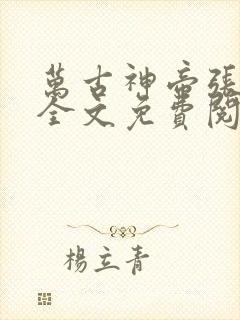 萬古神帝張
全文免費閱
楊立青